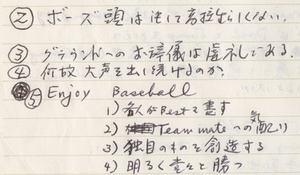 ② ボーズ頭は決して高校生らしくない。
③ グラウンドへのお辞儀は虚礼である。
④ 何故大声を出し続けるのか。
⑤ Enjoy Baseball
1) 各人がBestを尽す
2) Team mateへの気配り
3) 独自のものを創造する
4) 明るく堂々と勝つ